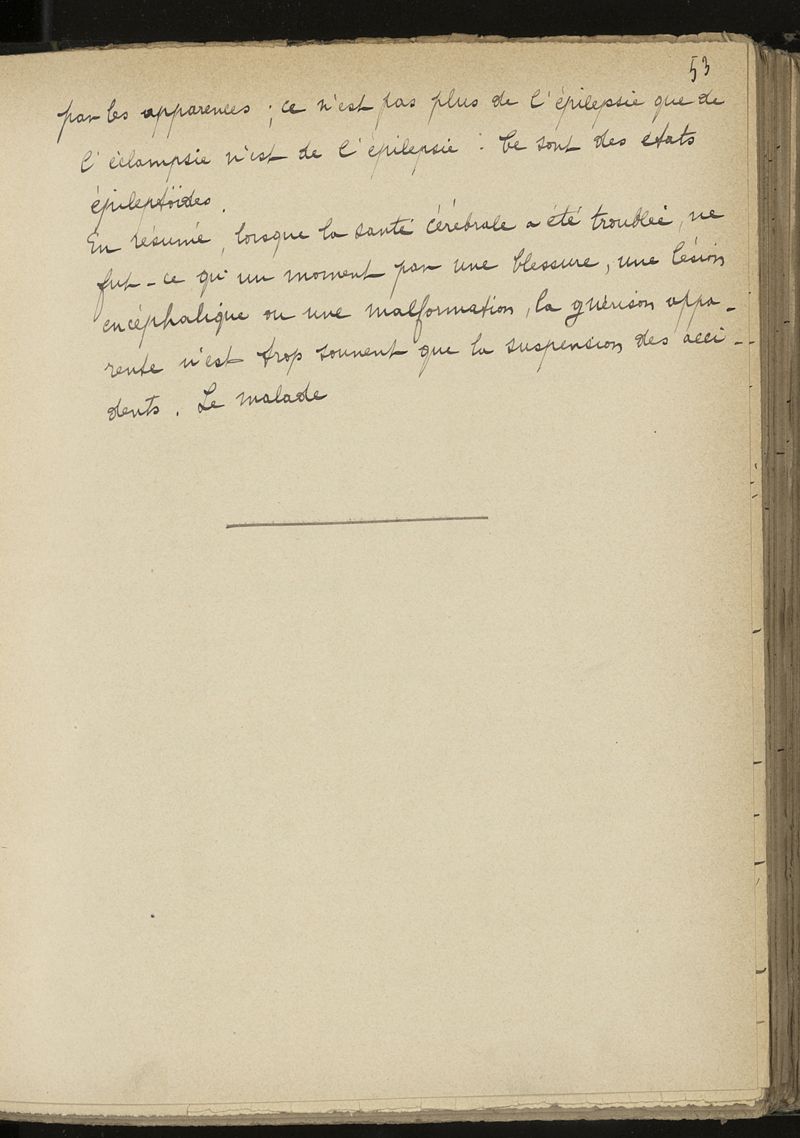 53
par les apparences ; ce n'est pas plus de l'épilepsie que de
l'éclampsie n'est de l'épilepsie : Ce sont des états
épileptöides.
En résumé, lorsque la santé cérébrale a été troublée, ne
fut-ce qu'un moment par une blessure, une lésion
encéphalique ou une malformation, la guérison appa-
rente n'est trop souvent que la suspension des acci-
dents. Le malade